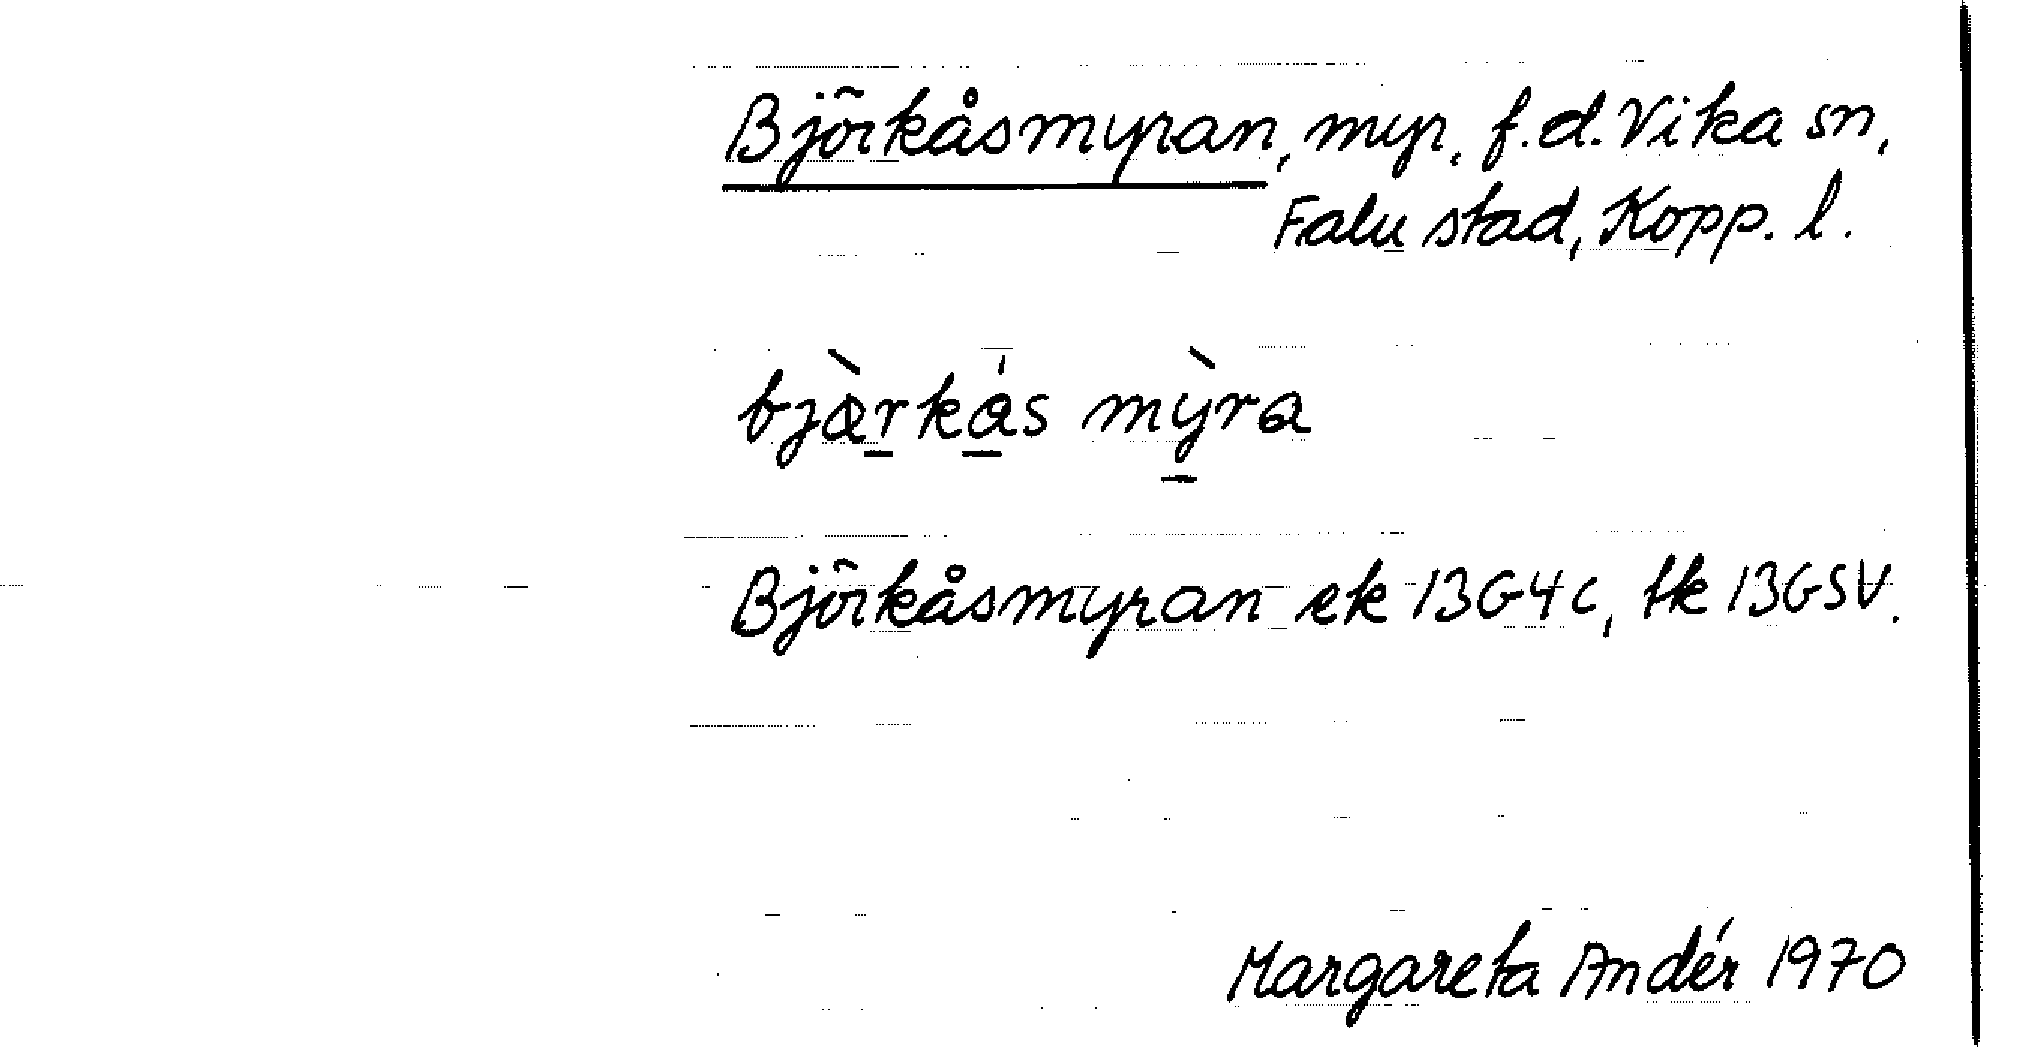 Björkåsmyran, myr, f.d. Vika sn,
Falu stad, Kopp. l.
bjæ̀rkás mỳra
Björkåsmyran ek 13G4c, tk 13GSV.
Margareta Andér 1970